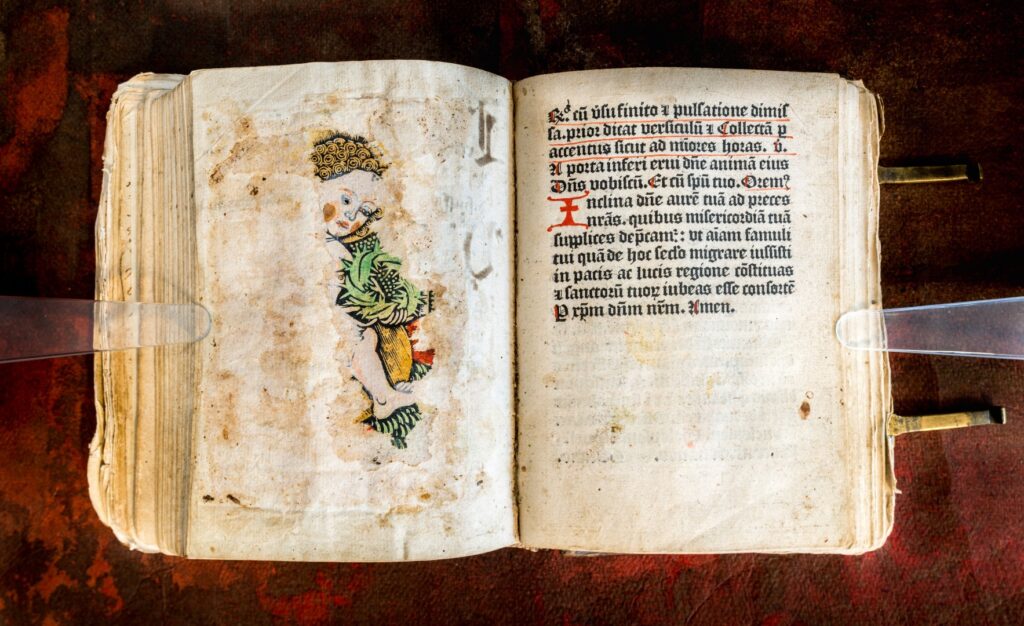 I
C
R̃. cũ v̉su finito ⁊ pulsatione dimis
sa. prior dicat versiculũ ⁊ Collectã p
accentus sicut ad mĩores horas. v̉.
A porta inferi erui dñe animã eius
Dñs vobiscũ. Et cũ spũ tuo. Oremꝰ
Inclina dñe aurẽ tuã ad preces
nrãs. quibus misericordiã tuã
supplices dep̃camꝛ: vt aĩam famuli
tui quã de hoc seclo migrare iussisti
in pacis ac lucis regione cõstituas
⁊ sanctorũ tuoꝝ iubeas esse consortẽ
P xp̃m dñm nrm̃. Amen.